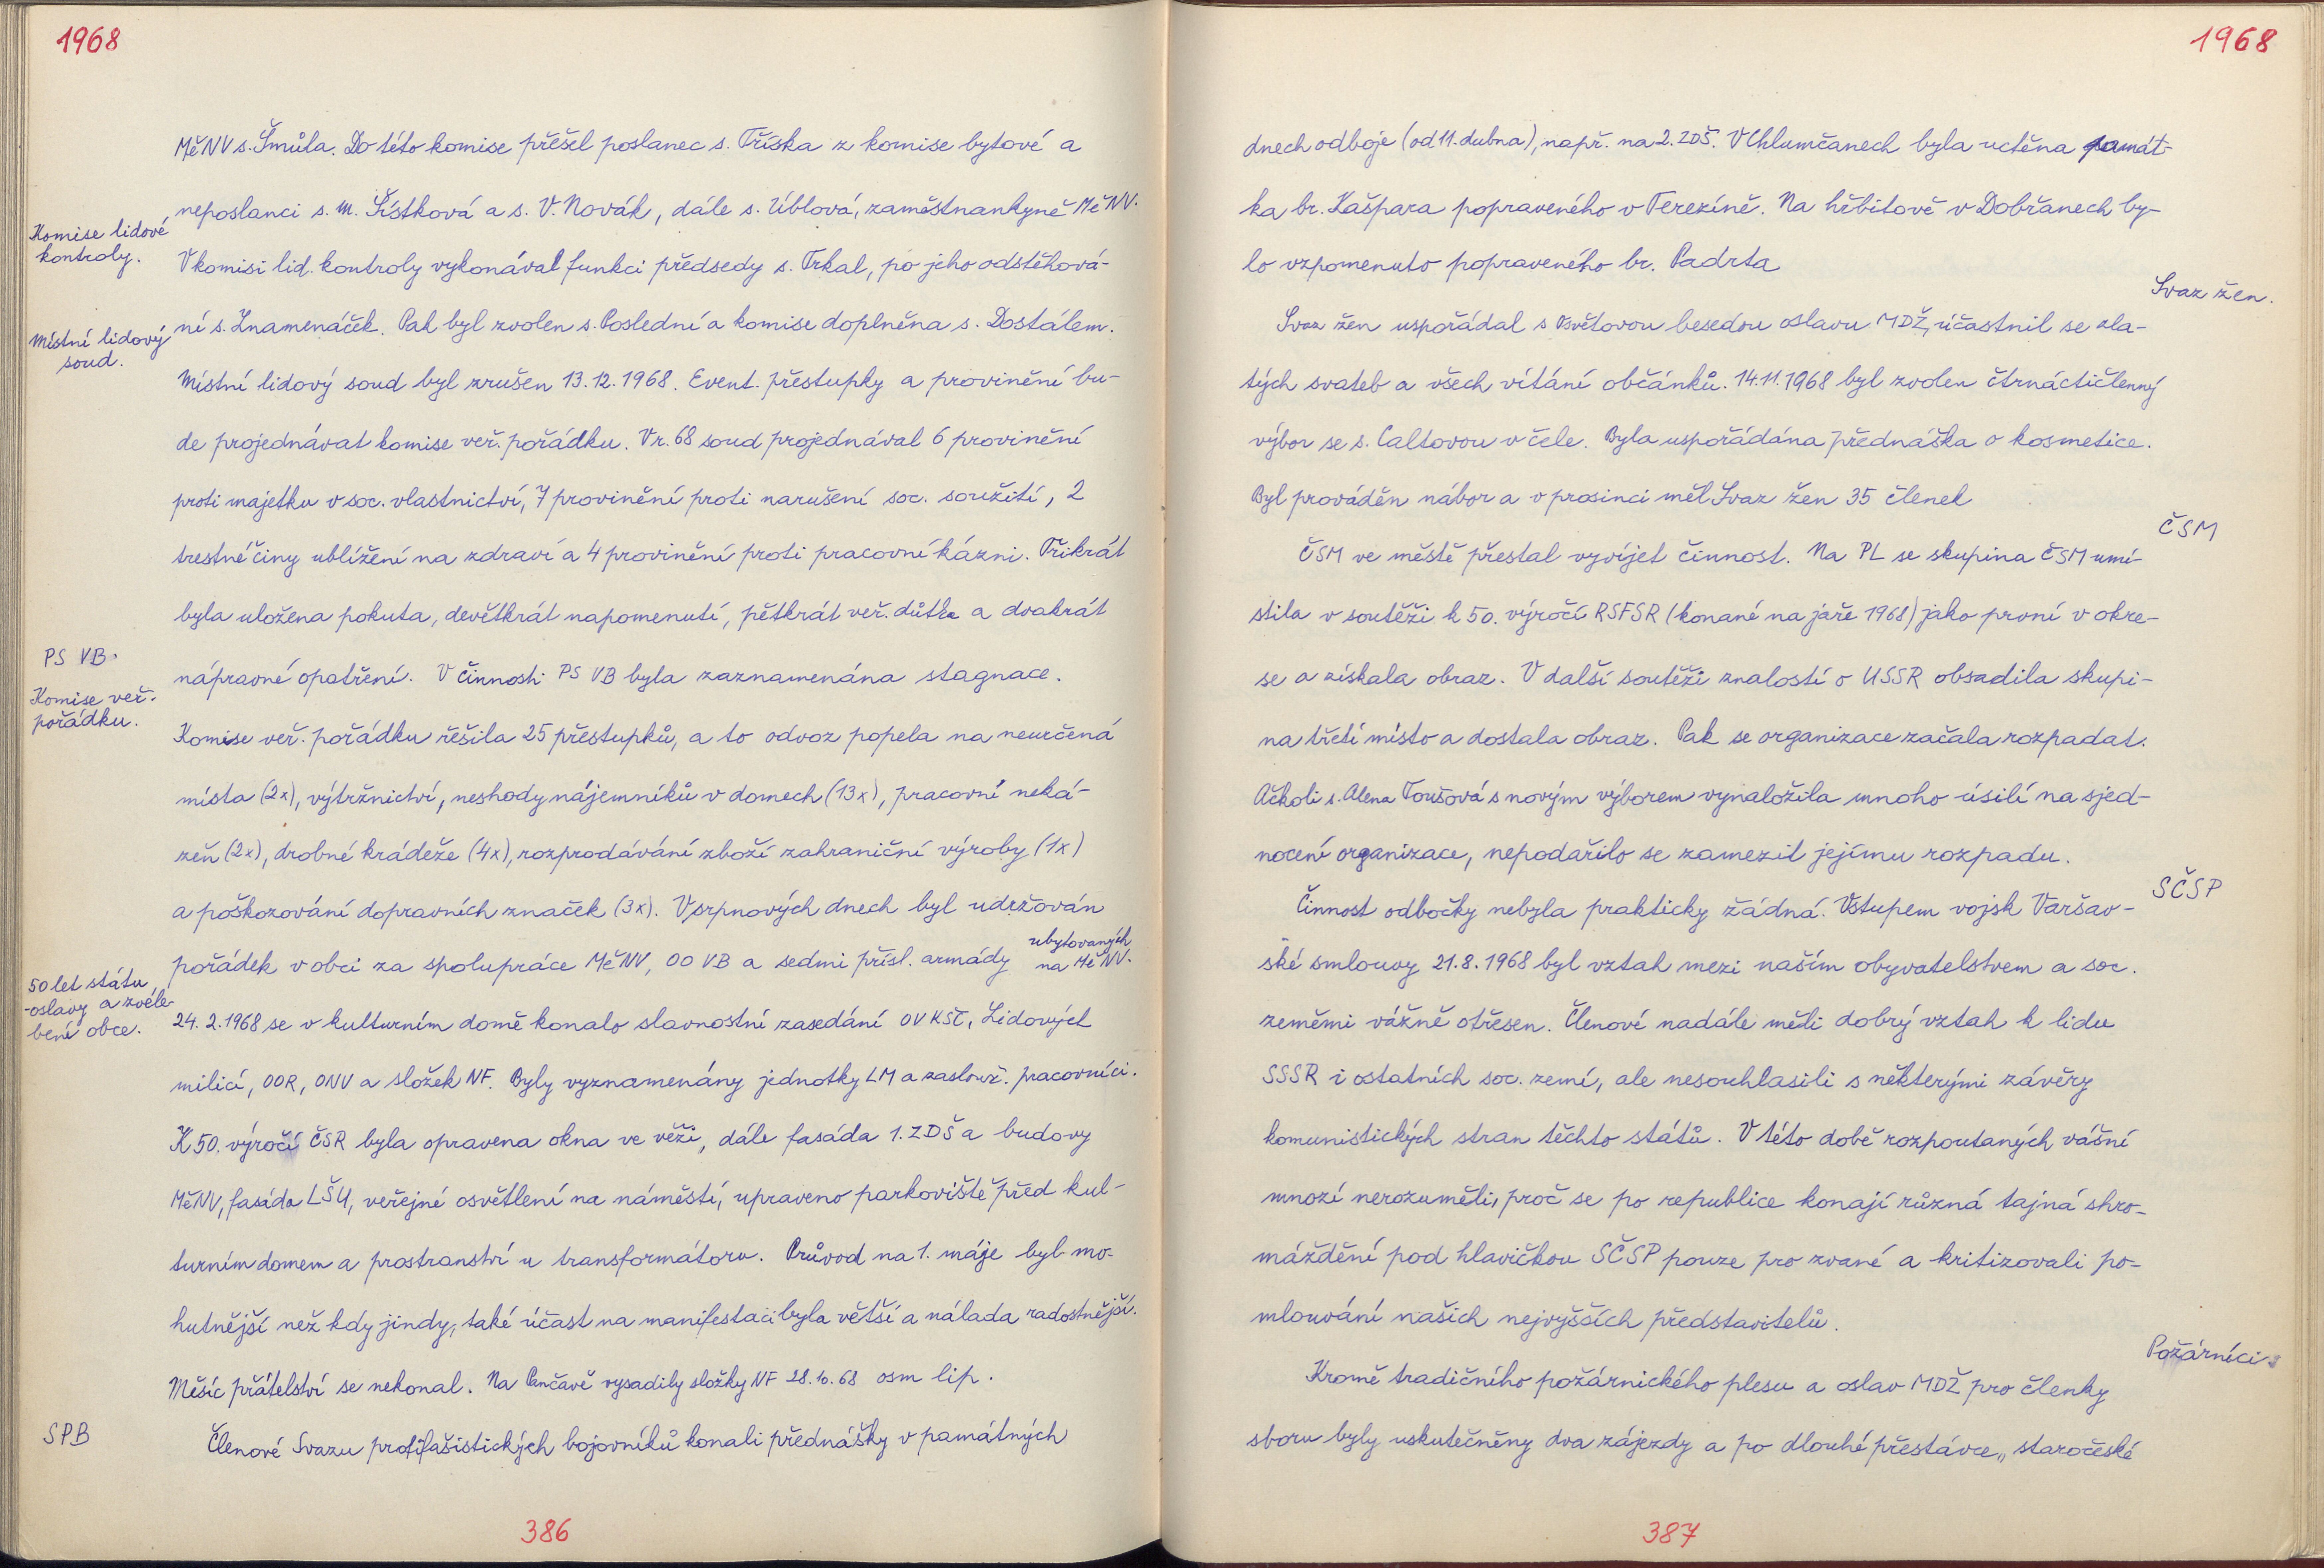 1968
MěNV s. Šmůla. Do této komise přešel poslanec s. Tříska z komise bytové a
neposlanci s. M. Šístková a s. V. Novák, dále s. Üblová, zaměstnankyně MěNV.
Komise lidové
kontroly.
V komisi lid. kontroly vykonával funkci předsedy s. Trkal, po jeho odstěhová-
ní s. Znamenáček. Pak byl zvolen s. Poslední a komise doplněna s. Dostálem.
Místní lidový
soud.
Místní lidový soud byl zrušen 13.12.1968. Event. přestupky a provinění bu-
de projednávat komise veř. pořádku. V r. 68 soud projednával 6 provinění
proti majetku v soc. vlastnictví, 7 provinění proti narušení soc. soužití, 2
trestné činy ublížení na zdraví a 4 provinění proti pracovní kázni. Třikrát
byla uložena pokuta, devětkrát napomenutí, pětkrát veř. důtka a dvakrát
PS VB.
nápravné opatření. V činnosti PS VB byla zaznamenána stagnace.
Komise veř.
pořádku.
Komise veř. pořádku řešila 25 přestupků, a to odvoz popela na neurčená
místa (2x), výtržnictví, neshody nájemníků v domech (13x), pracovní neká-
zeň (2x), drobné krádeže (4x), rozprodávání zboží zahraniční výroby (1x)
a poškozování dopravních značek (3x). V srpnových dnech byl udržován
pořádek v obci za spolupráce MěNV, OO VB a sedmi přísl. armády ubytovaných
na MěNV.
50 let státu
-oslavy a zvele-
bení obce.
24. 2. 1968 se v kulturním domě konalo slavnostní zasedání OV KSČ, Lidových
milicí, OOR, ONV a složek NF. Byly vyznamenány jednotky LM a zaslouž. pracovníci.
K 50. výročí ČSR byla opravena okna ve věži, dále fasáda 1. ZDŠ a budovy
MěNV, fasáda LŠU, veřejné osvětlení na náměstí, upraveno parkoviště před kul-
turním domem a prostranství u transformátoru. Průvod na 1. máje byl mo-
hutnější než kdy jindy, také účast na manifestaci byla větší a nálada radostnější.
Měsíc přátelství se nekonal. Na Pančavě vysadily složky NF 28.10.68 osm lip.
SPB
Členové Svazu protifašistických bojovníků konali přednášky v památných
386
1968
dnech odboje (od 11. dubna), např. na 2. ZDŠ. V Chlumčanech byla uctěna památ-
ka br. Kašpara popraveného v Terezíně. Na hřbitově v Dobřanech by-
lo vzpomenuto popraveného br. Padrta
Svaz žen.
Svaz žen uspořádal s Osvětovou besedou oslavu MDŽ, účastnil se zla-
tých svateb a všech vítání občánků. 14.11.1968 byl zvolen čtrnáctičlenný
výbor se s. Caltovou v čele. Byla uspořádána přednáška o kosmetice.
Byl prováděn nábor a v prosinci měl Svaz žen 35 členek
ČSM
ČSM ve městě přestal vyvíjet činnost. Na PL se skupina ČSM umí-
stila v soutěži k 50. výročí RSFSR (konané na jaře 1968) jako první v okre-
se a získala obraz. V další soutěži znalostí o USSR obsadila skupi-
na třetí místo a dostala obraz. Pak se organizace začala rozpadat.
Ačkoli s. Alena Toušová s novým výborem vynaložila mnoho úsilí na sjed-
nocení organizace, nepodařilo se zamezit jejímu rozpadu.
SČSP
Činnost odbočky nebyla prakticky žádná. Vstupem vojsk Varšav-
ské smlouvy 21.8.1968 byl vztah mezi naším obyvatelstvem a soc.
zeměmi vážně otřesen. Členové nadále měli dobrý vztah k lidu
SSSR i ostatních soc. zemí, ale nesouhlasili s některými závěry
komunistických stran těchto států. V této době rozpoutaných vášní
mnozí nerozuměli, proč se po republice konají různá tajná shro-
máždění pod hlavičkou SČSP pouze pro zvané a kritizovali po-
mlouvání našich nejvyšších představitelů.
Požárníci.
Kromě tradičního požárnického plesu a oslav MDŽ pro členky
sboru byly uskutečněny dva zájezdy a po dlouhé přestávce „staročeské
387